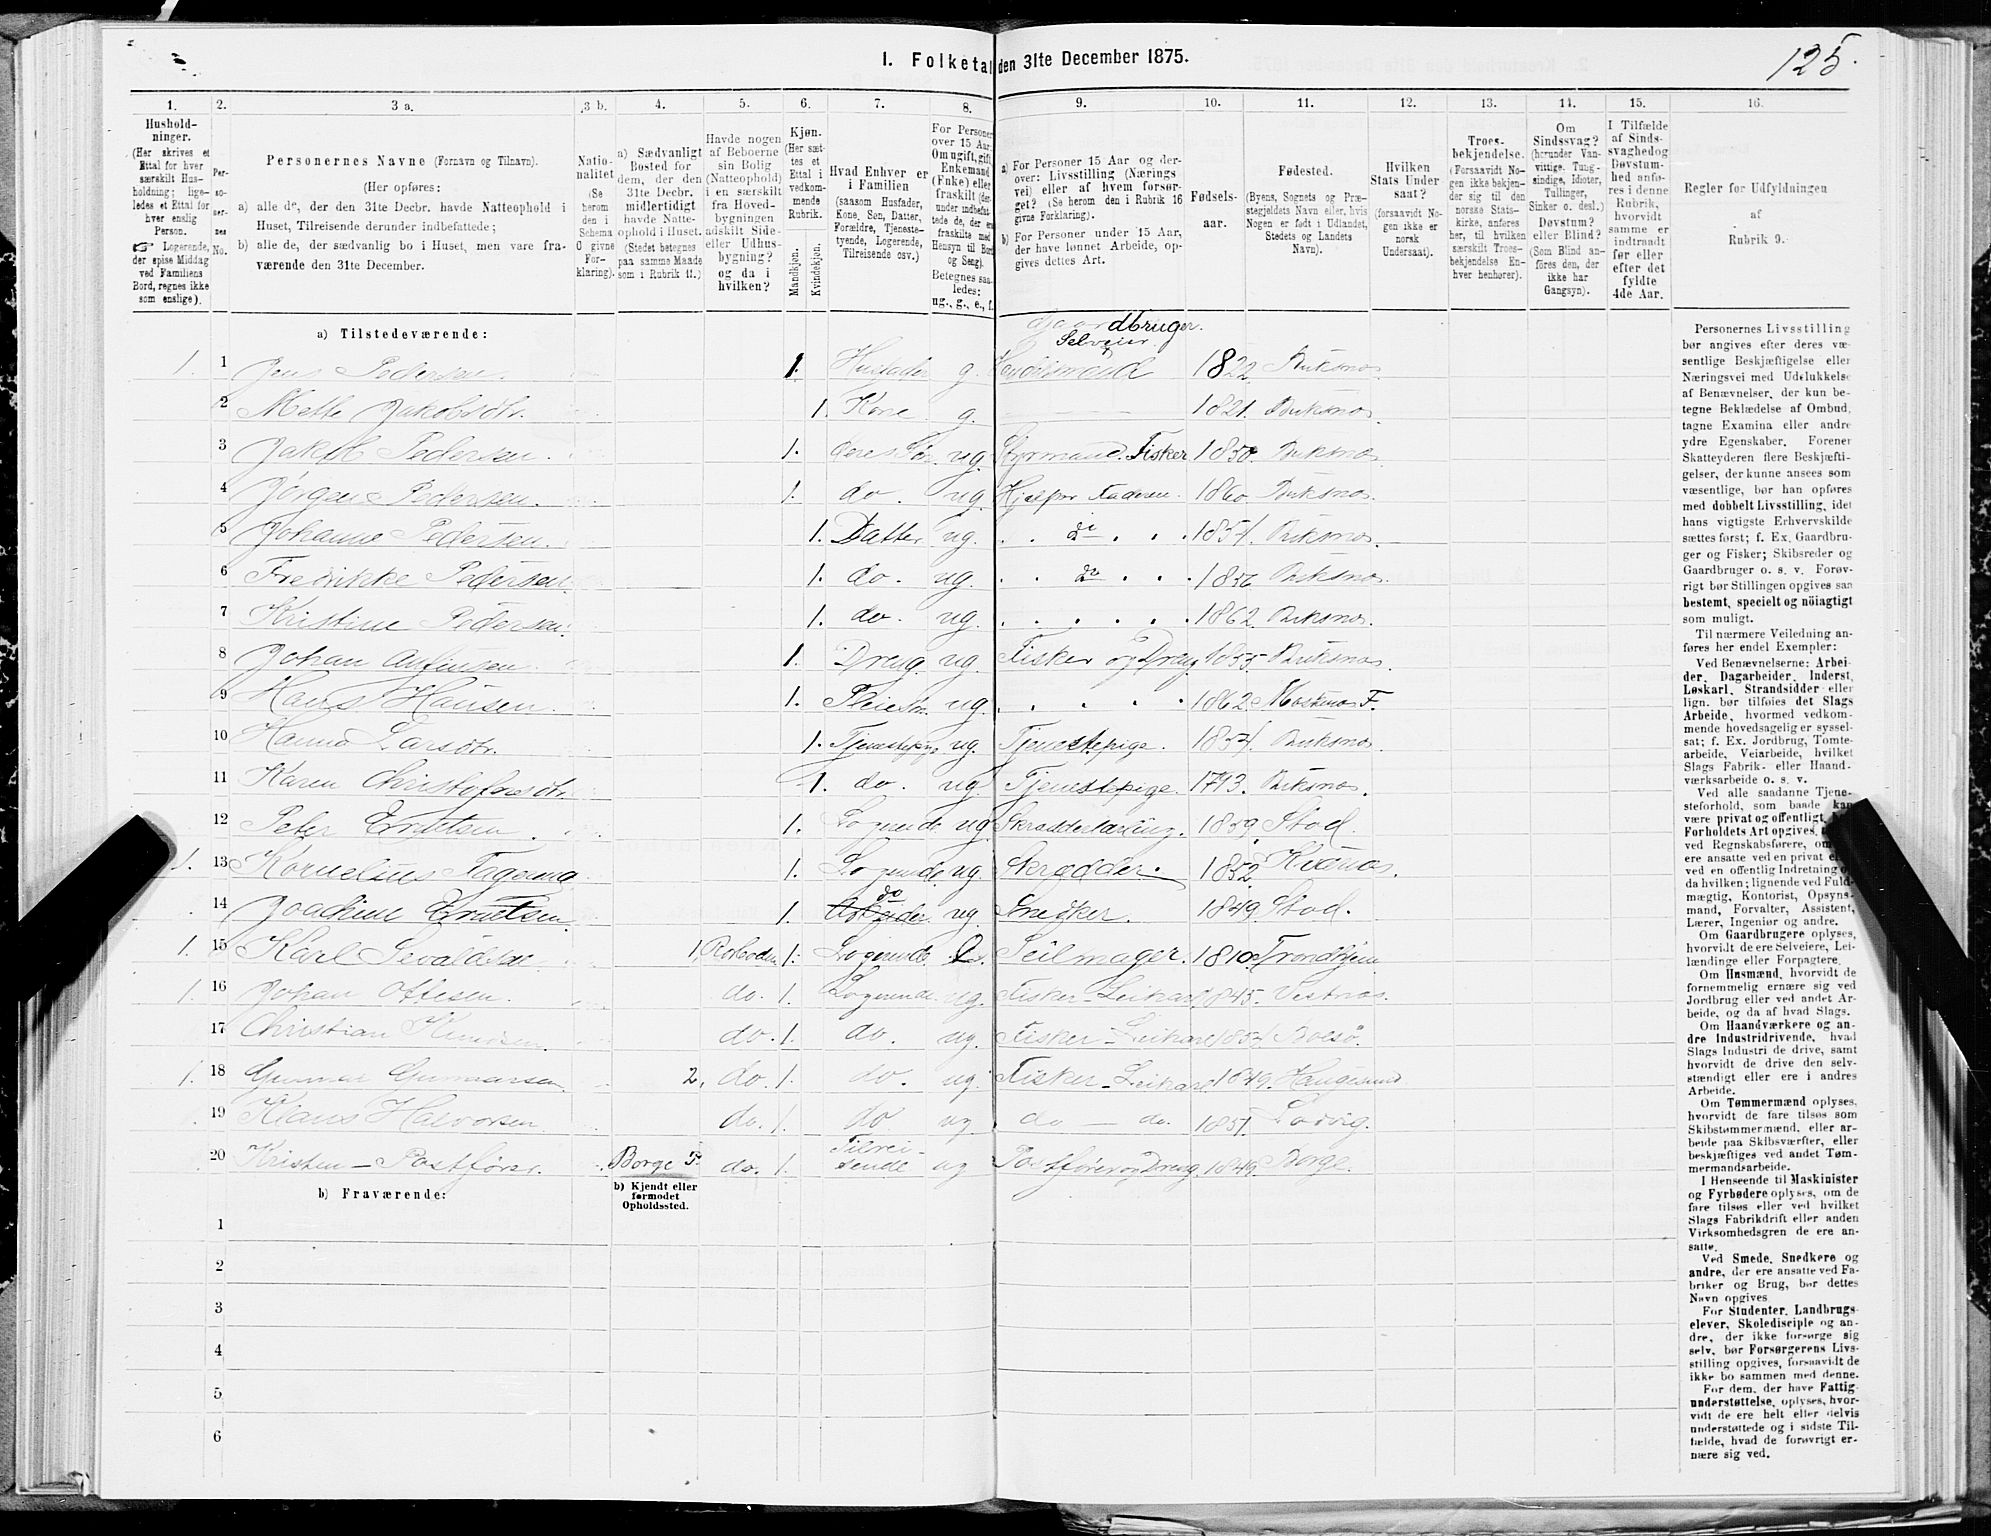 125.
1. Folketal den 31te December 1875.
1. 2. 3 a. 3 b. 4. 5. 6. 7. 8. 9. 10. 11. 12. 13. 14. 15. 16.
Husholdninger. (Her skrives et Ettal for hver særskilt Husholdning; ligeledes et Ettal for hver enslig Person. ☞ Logerende, der spise Middag ved Familiens Bord, regnes ikke som enslige).
Personernes No.
Personernes Navne (Fornavn og Tilnavn).
(Her opføres:
a) alle de, der den 31te Decbr. havde Natteophold i Huset, Tilreisende derunder indbefattede;
b) alle de, der sædvanlig bo i Huset, men vare fraværende den 31te December.
Nationalitet (Se herom den i Schema 0 givne Forklaring).
a) Sædvanligt Bosted for dem, der den 31te Decbr. midlertidigt havde Natteophold i Huset. (Stedet betegnes paa samme Maade som i Rubrik 11.)
Havde nogen af Beboerne sin Bolig (Natteophold) i en særskilt fra Hovedbygningen adskilt Side- eller Udhusbygning? og da i hvilken?
Kjøn. (Her sættes et Ettal i vedkommende Rubrik.
Mandkjøn. Kvindekjøn.
Hvad Enhver er i Familien (saasom Husfader, Kone, Søn, Datter, Forældre, Tjenestetyende, Logerende, Tilreisende osv.)
For Personer over 15 Aar: Om ugift, gift, Enkemand (Enke) eller fraskilt (derunder indbefattede de, der ere fraskilte med Hensyn til Bord og Seng). Betegnes saaledes: ug., g., e., f.
a) For Personer 15 Aar og derover: Livsstilling (Næringsvei) eller af hvem forsørget? (Se herom den i Rubrik 16 givne Forklaring).
b) For Personer under 15 Aar, der have lønnet Arbeide, opgives dettes Art.
Fødselsaar.
Fødested. (Byens, Sognets og Præstegjeldets Navn eller, hvis Nogen er født i Udlandet, Stedets og Landets Navn).
Hvilken Stats Undersaat? (forsaavidt Nogen ikke er norsk Undersaat).
Troesbekjendelse. (Forsaavidt Nogen ikke bekjender sig til den norske Statskirke, anføres her, til hvilken særskilt Troesbekjendelse Enhver henhører).
Om Sindssvag? (herunder Vanvittige, Tungsindige, Idioter, Tullinger, Sinker o. desl.) Døvstum? eller Blind? (Som Blind anføres den, der ikke har Gangsyn).
I Tilfælde af Sindssvaghed og Døvstumhed anføres i denne Rubrik, hvorvidt samme er indtraadt før eller efter det fyldte 4de Aar.
Regler for Udfyldningen af Rubrik 9.
a) Tilstedeværende:
Gaardbruger.
Selveier
1. 1 Jens Pedersen 1. Husfader g. Handelsmand 1822 Buksnes
2 Mette Jakobsdtr. 1. Kone g. 1821. Buksnes
3 Jakob Pedersen. 1. deres Søn ug. Styrmand. Fisker 1850. Buksnes
4 Jørgen Pedersen. 1. do. ug. Hjelper Faderen. 1860. Buksnes
5 Johanne Pedersen. 1. Datter ug. do 1854. Buksnes.
6 Fredrikke Pedersen 1. do. ug. do 1856 Buksnes.
7 Kristine Pedersen. 1. do. ug. 1862. Buksnes.
8 Johan 1. Dreng ug. Fisker og Dreng 1855 Buksnes.
9 Hans Hansen. 1. Pleiesøn ug. 1862 F.
10 Hanna Larsdtr. 1. Tjenestepige ug. Tjenestepige. 1854. Buksnes.
11 Karen Christofersdtr. 1. do. ug. Tjenestepige. 1793. Buksnes.
12 Peter 1. Logerende ug Skrædderlærling. 1859 Stod.
1. 13 Kornelius 1. Logerende ug. Skrædder. 1852.
14 Joachim 1. do Logerende ug. Snedker. 1849 Stod.
1. 15 Karl Sevaldsen 1. Rorboden 1. Logerende Seilmager. 1810. Trondhjem
1. 16 Johan Ottesen. do. 1. Logerende ug. Fisker-Leikarl 1845. Vestnes.
17 Christian Knudsen. do. 1. do. ug. Fisker-Leikarl 1854 Bolsø.
1. 18 Gunnar Gunnarsen 2. do. 1. do. ug. Fisker-Leikarl 1849. Haugesund
19 Klaus Halvorsen do. 1. do ug do — do. 1851. Ladvig.
20 Kristen - Postfører. Borge P. do. 1. Tilreisende ug Postfører og Dreng. 1849 Borge.
b) Fraværende: b) Kjendt eller formodet Opholdssted.
1
2
3
4
5
6
Personernes Livsstilling bør angives efter deres væsentlige Beskjæftigelse eller Næringsvei med Udelukkelse af Benævnelser, der kun betegne Beklædelse af Ombud, tagne Examina eller andre ydre Egenskaber. Forener Skatteyderen flere Beskjæftigelser, der kunne ansees som væsentlige, bør han opføres med dobbelt Livsstilling, idet hans vigtigste Erhvervskilde sættes først; f. Ex. Gaardbruger og Fisker; Skibsreder og Gaardbruger o. s. v. Forøvrigt bør Stillingen opgives saa bestemt, specielt og nöiagtigt som muligt.
Til nærmere Veiledning anføres her endel Exempler:
Ved Benævnelserne: Arbeider, Dagarbeider, Inderst, Løskarl, Strandsidder eller lign. bør tilføies det Slags Arbeide, hvormed vedkommende hovedsagelig er sysselsat; f. Ex. Jordbrug, Tomtearbeide, Veiarbeide, hvilket Slags Fabrik- eller Haandværksarbeide o. s. v.
Ved alle saadanne Tjenesteforhold, som baade kan være privat og offentligt, Forholdets Art opgives, ved Regnskabsførere, om ere ansatte ved en privat eller ved en offentlig Indretning og da hvilken; lignende ved Fuldmægtig, Kontorist, Opsynsmand, Forvalter, Assistent, Lærer, Ingeniør og andre.
Om Gaardbrugere oplyses, hvorvidt de ere Selveiere, Leilændinge eller Forpagtere.
Om Husmænd, hvorvidt de fornemmelig ernære sig ved Jordbrug eller ved andet Arbeide, og da af hvad Slags.
Om Haandværkere og andre Industridrivende, hvad Slags Industri de drive, samt hvorvidt de drive den selvstændigt eller ere i andres Arbeide.
Om Tømmermænd oplyses, hvorvidt de fare tilsøs som Skibstømmermænd, eller arbeide paa Skibsværfter, eller beskjæftiges ved andet Tømmermandsarbeide.
I Henseende til Maskinister og Fyrbødere oplyses, om de fare tilsøs eller ved hvilket Slags Fabrikdrift eller anden Virksomhedsgren de ere ansatte.
Ved Smede, Snedkere og andre, der ere ansatte ved Fabriker og Brug, bør dettes Navn opgives.
For Studenter, Landbrugselever, Skoledisciple og andre, der ikke forsørge sig selv, bør Forsørgerens Livsstilling opgives, forsaavidt de ikke bo sammen med denne.
For dem, der have Fattigunderstøttelse, oplyses, hvorvidt de ere helt eller delvis understøttede og i sidste Tilfælde, hvad de forøvrigt ernære sig ved.